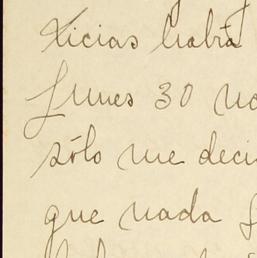 ticias habrá
lunes 30 no
sólo me deci
que nada